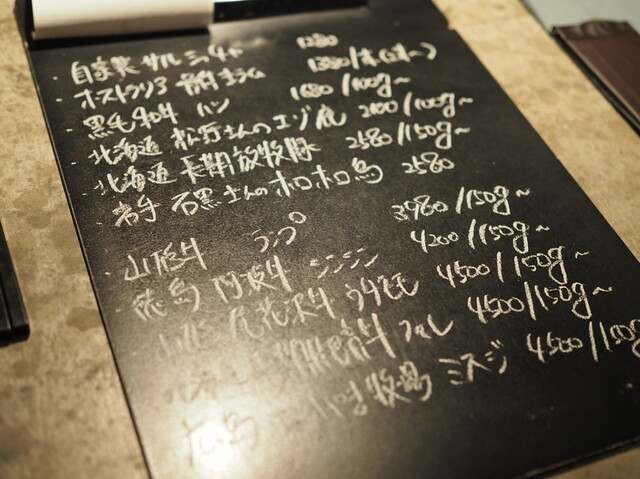 ・自家製 サルシッチャ 1280
・オーストラリア 骨付きラム 1380/本(2本〜)
・黒毛和牛 ハツ 1680/100g〜
・北海道 松野さんのエゾ鹿 2100/100g〜
・北海道 長期放牧豚 2580/150g〜
・岩手 石黒さんのホロホロ鳥 2580
・山形牛 ランプ 3980/150g〜
・徳島 阿波牛 シンシン 4200/150g〜
・山形 尾花沢牛 うちもも 4500/150g〜
牛 フィレ 4500/150g〜
広島 牧場 ミスジ 4500/150g